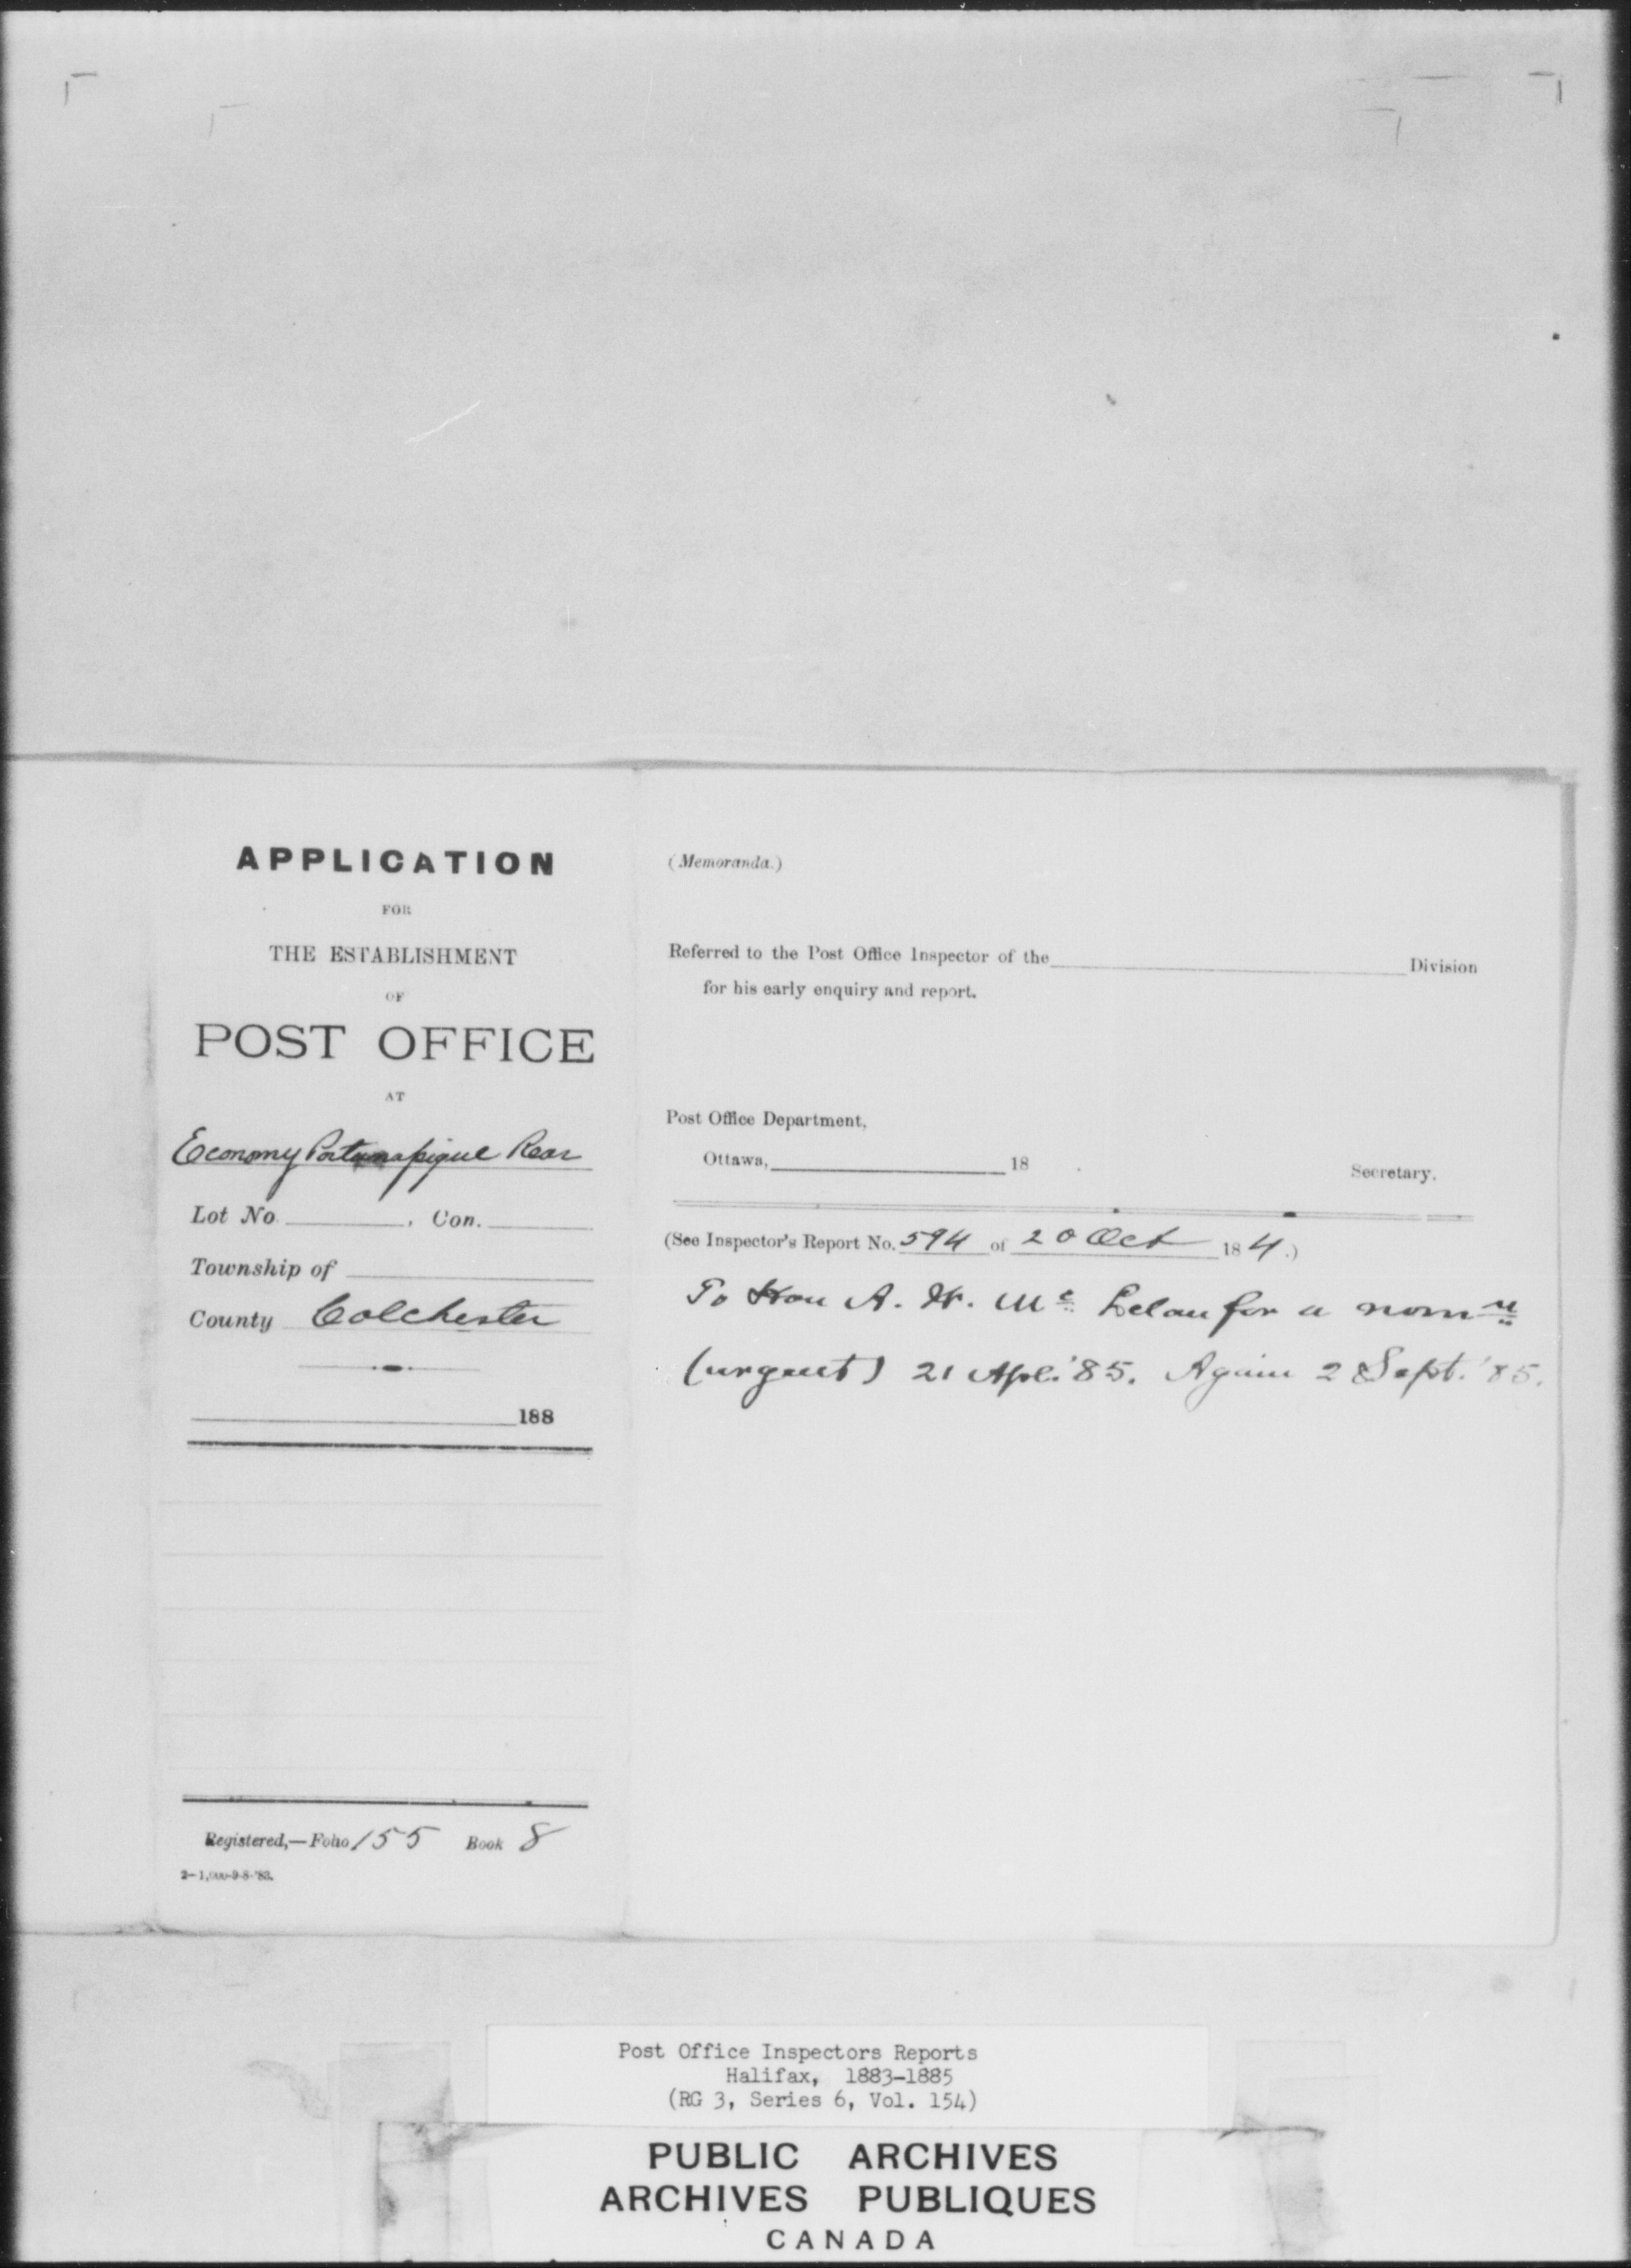 APPLICATION
FOR
THE ESTABLISHMENT
OF
POST OFFICE
AT
Economy Portumapique Rear
Lot No. , Con.
Township of
County Colchester
188
Registered,—Folio 155 Book 8
2—1,000-9-8-'83.
(Memoranda.)
Referred to the Post Office Inspector of the Division
for his early enquiry and report.
Post Office Department,
Ottawa, 18 .
Secretary.
(See Inspector's Report No. 594 of 20 Oct 184.)
To Hon A. W. Mc Lelan for a nomn
(urgent) 21 Apl. '85. Again 28 Sept. '85.
Post Office Inspectors Reports
Halifax, 1883-1885
(RG 3, Series 6, Vol. 154)
PUBLIC ARCHIVES
ARCHIVES PUBLIQUES
CANADA